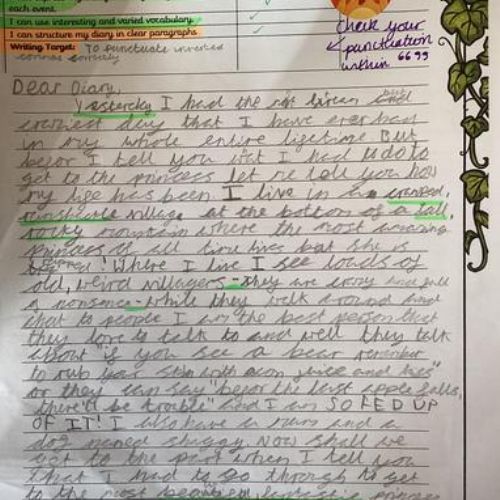 each event.
I can use interesting and varied vocabulary.
I can structure my diary in clear paragraphs
Writing Target: To punctuate inverted commas correctly
check your
punctuation
within 66 99
Dear Diary,
Yestercky I had the and
day that I have ever had
in my whole entire ligetime But
befor I tell you I had to do to
get to the princess let me tell you how
my lige has been. I live in a cramped,
miniscule village at the bottom of a tall,
rocky mountain where the most amazing
princess of all time lives but she is
! Where I live I see loads of
old, weird villagers - they are crazy and full
of nonsence - while they walk around and
chat to people I am the best person that
they love to talk to and well they talk
about "if you see a bear remember
to rub your skin with acon juice and
or they can say "befor the last apple falls,
there'll be trouble" and I am SO FED UP
OF IT! I also have a mum and a
dog named shaggy. Now shall we
get to the part when I tell you
what I had to go through to get
to the most beautiful